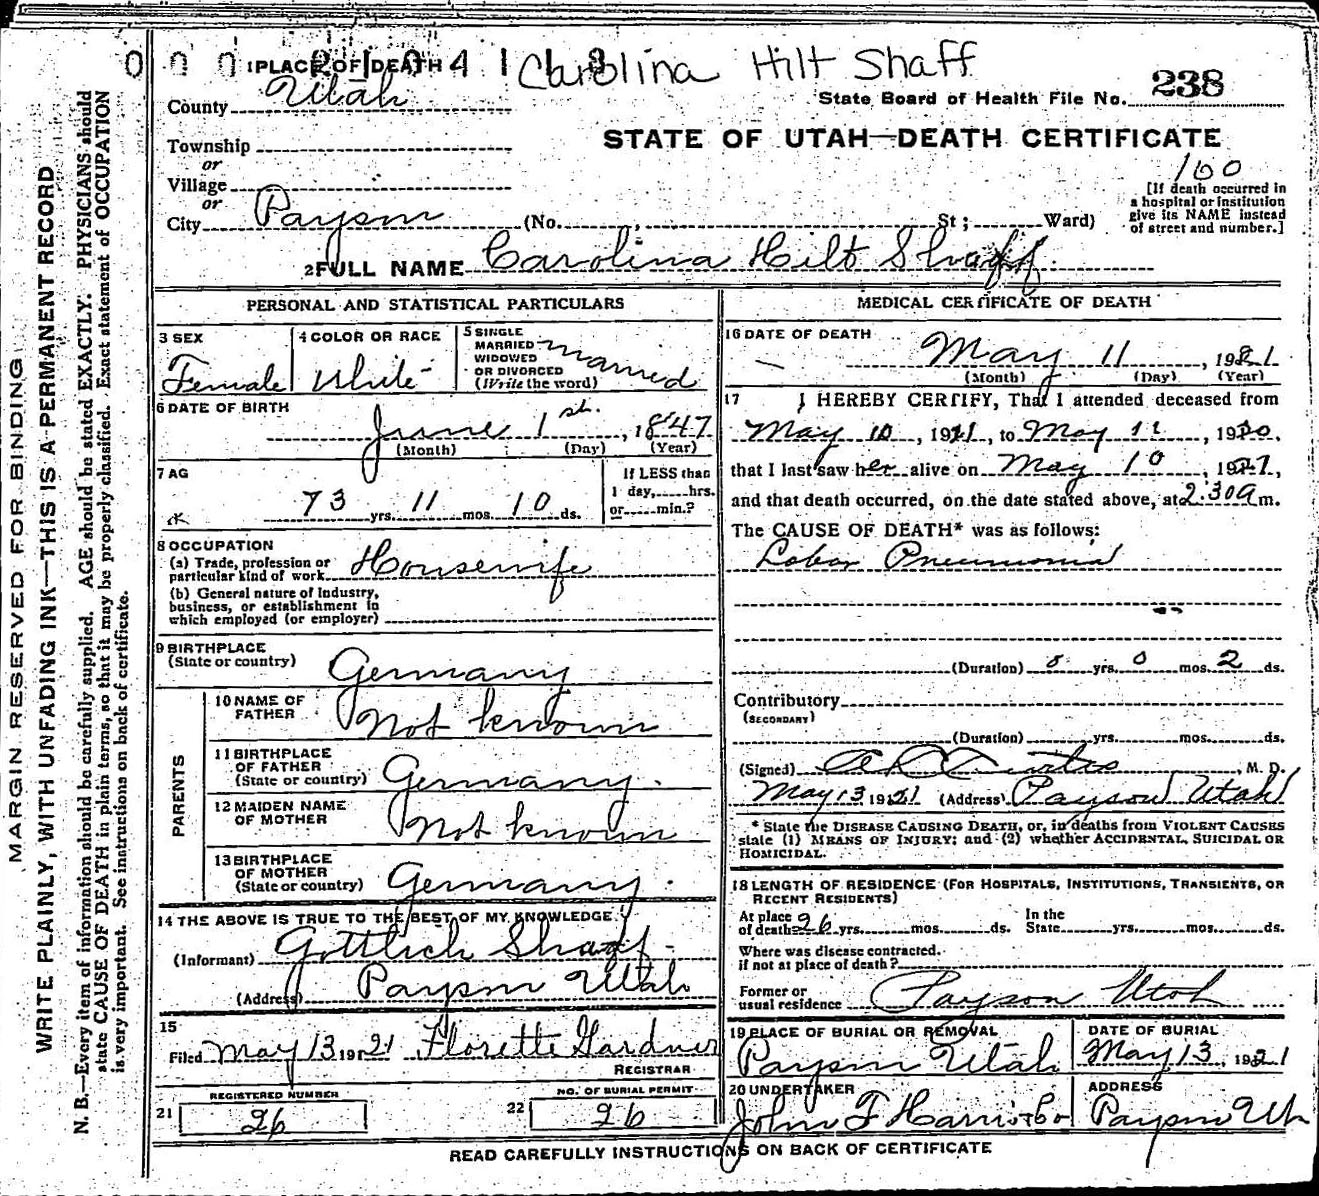 0 0 0 2 1 0 4 1 1 3 Carolina Hilt Shaff
1 PLACE OF DEATH
County Utah
State Board of Health File No. 238
STATE OF UTAH—DEATH CERTIFICATE
Township
or
Village
or
City Payson (No. , St ; Ward)
160
[If death occurred in
a hospital or institution
give its NAME instead
of street and number.]
2 FULL NAME Carolina Hilt Shaff.
PERSONAL AND STATISTICAL PARTICULARS
3 SEX
Female
4 COLOR OR RACE
White
5 SINGLE
MARRIED
WIDOWED
OR DIVORCED
(Write the word)
Married
6 DATE OF BIRTH
June 1st. , 1847
(Month) (Day) (Year)
7 AG
73 yrs. 11 mos. 10 ds.
If LESS than
1 day, hrs.
or min.?
8 OCCUPATION
(a) Trade, profession or
particular kind of work Housewife
(b) General nature of Industry,
business, or establishment in
which employed (or employer)
9 BIRTHPLACE
(State or country) Germany
PARENTS
10 NAME OF
FATHER Not known
11 BIRTHPLACE
OF FATHER
(State or country) Germany.
12 MAIDEN NAME
OF MOTHER Not known
13 BIRTHPLACE
OF MOTHER
(State or country) Germany.
14 THE ABOVE IS TRUE TO THE BEST OF MY KNOWLEDGE
(Informant) Gottlich Shaff
(Address) Payson Utah
15
Filed May 13 1921 Florette Gardner
REGISTRAR
REGISTERED NUMBER
21 26
NO. OF BURIAL PERMIT
22 26
MEDICAL CERTIFICATE OF DEATH
16 DATE OF DEATH
May 11 , 1921
(Month) (Day) (Year)
17 I HEREBY CERTIFY, That I attended deceased from
May 10 , 1921, to May 11 , 1920,
that I last saw her alive on May 10 , 1921,
and that death occurred, on the date stated above, at 2:30a m.
The CAUSE OF DEATH* was as follows:
Lobar Pneumonia
(Duration) 0 yrs. 0 mos. 2 ds.
Contributory
(SECONDARY)
(Duration) yrs. mos. ds.
(Signed) , M. D.
May 13 1921 (Address) Payson Utah
* State the DISEASE CAUSING DEATH, or, in deaths from VIOLENT CAUSES
state (1) MEANS OF INJURY; and (2) whether ACCIDENTAL, SUICIDAL OR
HOMICIDAL.
18 LENGTH OF RESIDENCE (FOR HOSPITALS, INSTITUTIONS, TRANSIENTS, OR
RECENT RESIDENTS)
At place
of death 26 yrs. mos. ds.
In the
State yrs. mos. ds.
Where was disease contracted.
if not at place of death?
Former or
usual residence Payson Utah
19 PLACE OF BURIAL OR REMOVAL
Payson Utah
DATE OF BURIAL
May 13, 1921
20 UNDERTAKER
John F Harris & Co
ADDRESS
Payson Uth
READ CAREFULLY INSTRUCTIONS ON BACK OF CERTIFICATE
MARGIN RESERVED FOR BINDING
WRITE PLAINLY, WITH UNFADING INK—THIS IS A PERMANENT RECORD
N. B.—Every item of information should be carefully supplied. AGE should be stated EXACTLY. PHYSICIANS should
state CAUSE OF DEATH in plain terms, so that it may be properly classified. Exact statement of OCCUPATION
is very important. See instructions on back of certificate.